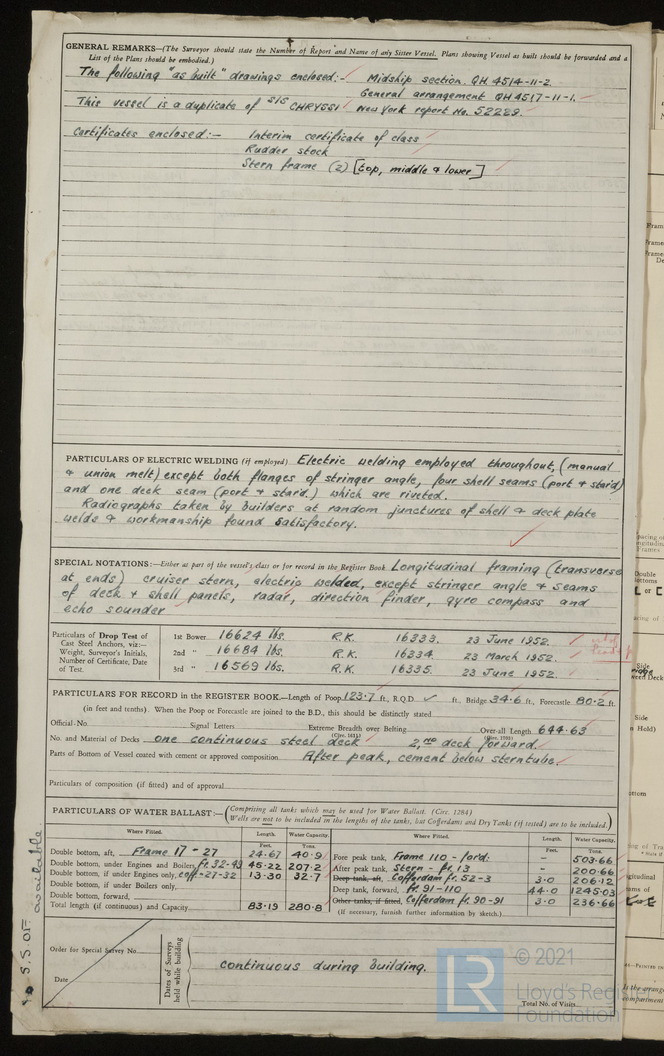 GENERAL REMARKS—(The Surveyor should state the Number of Report and Name of any Sister Vessel. Plans showing Vessel as built should be forwarded and a
List of the Plans should be embodied.)
The following "as built" drawings enclosed:- Midship section QH 4514-11-2.
General arrangement QH 4517-11-1.
This vessel is a duplicate of S/S CHRYSSI New York report No. 52229.
Certificates enclosed:— Interim certificate of class
Rudder stock
Stern frame (2) [top, middle & lower]
PARTICULARS OF ELECTRIC WELDING (if employed) Electric welding employed throughout, (manual
& union melt) except both flanges of stringer angle, four shell seams (port & star'd)
and one deck seam (port & star'd.) which are riveted.
Radiographs taken by builders at random junctures of shell & deck plate
welds & workmanship found satisfactory.
SPECIAL NOTATIONS:—Either as part of the vessel's class or for record in the Register Book. Longitudinal framing (transverse
at ends) cruiser stern, electric welded, except stringer angle & seams
of deck & shell panels, radar, direction finder, gyro compass and
echo sounder
Particulars of Drop Test of
Cast Steel Anchors, viz:—
Weight, Surveyor's Initials,
Number of Certificate, Date
of Test.
1st Bower 16624 lbs. R.K. 16333. 23 June 1952.
2nd " 16684 lbs. R.K. 16234. 23 March 1952.
3rd " 16569 lbs. R.K. 16335. 23 June 1952.
PARTICULARS FOR RECORD in the REGISTER BOOK.—Length of Poop 123.7 ft., R.Q.D. ✓ ft., Bridge 34.6 ft., Forecastle 80.2 ft.
(in feet and tenths). When the Poop or Forecastle are joined to the B.D., this should be distinctly stated
Official No. Signal Letters Extreme Breadth over Belting (Circ. 1611) Over-all Length 644.63 (Circ. 1703)
No. and Material of Decks one continuous steel deck 2nd deck forward.
Parts of Bottom of Vessel coated with cement or approved composition After peak, cement below sterntube.
Particulars of composition (if fitted) and of approval
PARTICULARS OF WATER BALLAST:— (Comprising all tanks which may be used for Water Ballast. (Circ. 1284)
Wells are not to be included in the lengths of the tanks, but Cofferdams and Dry Tanks (if tested) are to be included.)
Where Fitted. Length. Water Capacity. Where Fitted. Length. Water Capacity.
Feet. Tons. Feet. Tons.
Double bottom, aft, Frame 17 - 27 24.67 40.9 Fore peak tank, Frame 110 - for'd: - 503.66
Double bottom, under Engines and Boilers, fr. 32-49 45.22 207.2 After peak tank, Stern - fr. 13 - 200.66
Double bottom, if under Engines only, coff-27-32 13.30 32.7 Deep tank, aft, Cofferdam fr. 52-3 3.0 206.12
Double bottom, if under Boilers only, Deep tank, forward, fr. 91-110 44.0 1245.03
Double bottom, forward, Other tanks, if fitted, Cofferdam fr. 90-91 3.0 236.66
Total length (if continuous) and Capacity 83.19 280.8 (If necessary, furnish further information by sketch.)
Order for Special Survey No.
Date
Dates of Surveys held while building
continuous during building.
Total No. of Visits
available
LR
© 2021
Lloyd's Register
Foundation